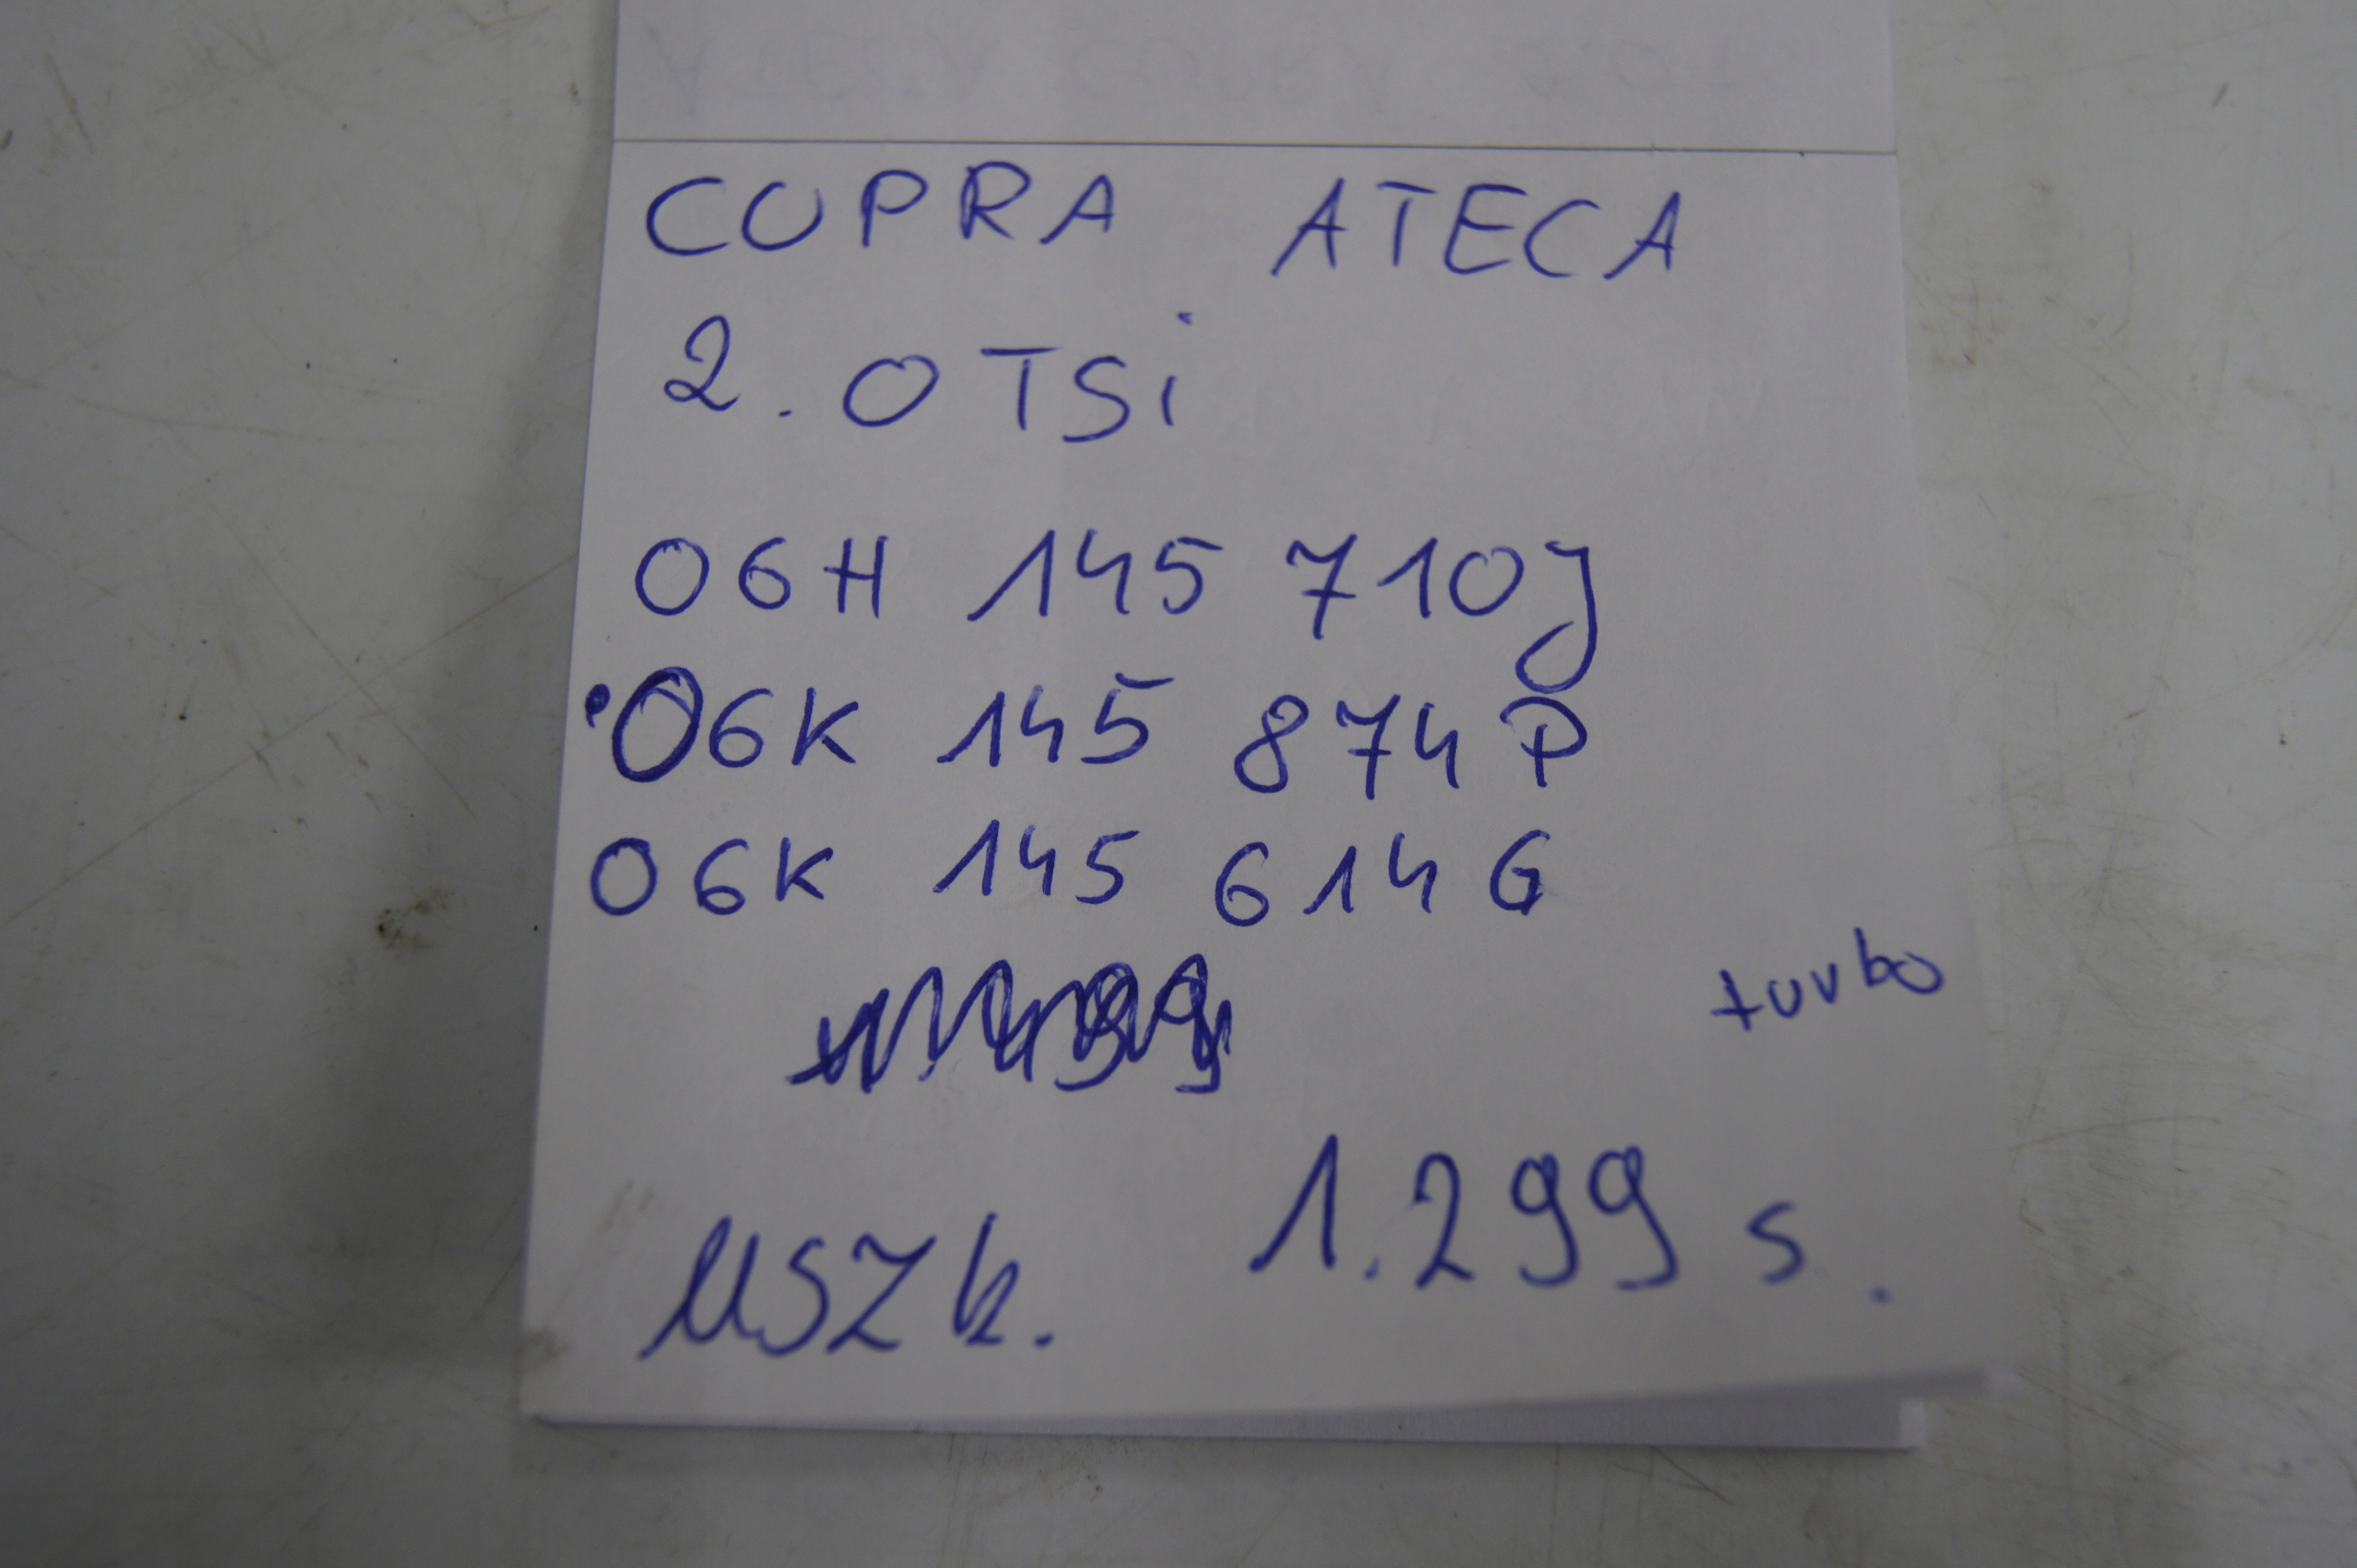 CUPRA ATECA
2.0 TSi
06H 145 710J
06K 145 874 P
06K 145 614 G
turbo
1.299 s.
USZk.